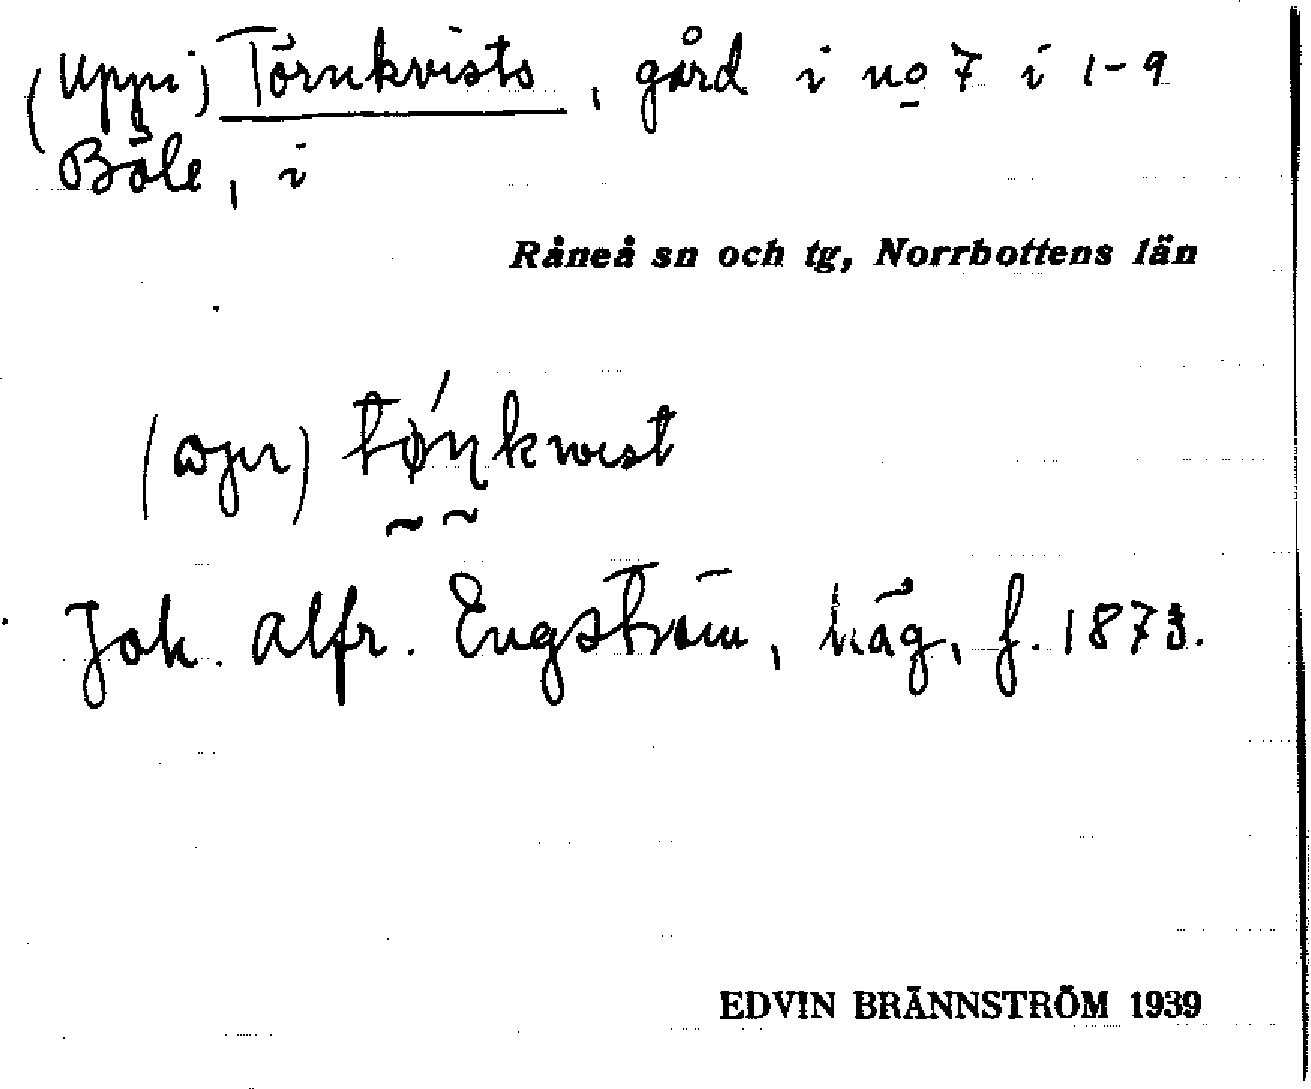 (Uppi) Törnkvists, gård i no 7 i 1-9
Böle, i
Råneå sn och tg, Norrbottens län
Joh. Alfr. Engström, häg, f. 1873.
EDVIN BRÄNNSTRÖM 1939